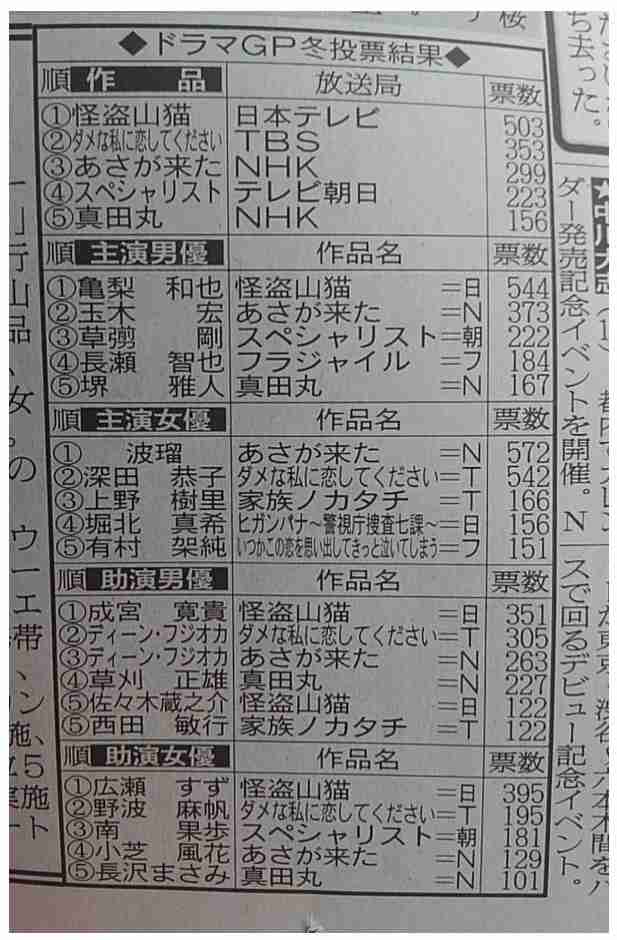 ◆ドラマGP冬投票結果◆
順 作品 放送局 票数
①怪盗山猫 日本テレビ 503
②ダメな私に恋してください TBS 353
③あさが来た NHK 299
④スペシャリスト テレビ朝日 223
⑤真田丸 NHK 156
順 主演男優 作品名 票数
①亀梨 和也 怪盗山猫 =日 544
②玉木 宏 あさが来た =N 373
③草彅 剛 スペシャリスト=朝 222
④長瀬 智也 フラジャイル=フ 184
⑤堺 雅人 真田丸 =N 167
順 主演女優 作品名 票数
① 波瑠 あさが来た =N 572
②深田 恭子 ダメな私に恋してください=T 542
③上野 樹里 家族ノカタチ =T 166
④堀北 真希 ヒガンバナ～警視庁捜査七課～=日 156
⑤有村 架純 いつかこの恋を思い出してきっと泣いてしまう=フ 151
順 助演男優 作品名 票数
①成宮 寛貴 怪盗山猫 =日 351
②ディーン・フジオカ ダメな私に恋してください=T 305
③ディーン・フジオカ あさが来た =N 263
④草刈 正雄 真田丸 =N 227
⑤佐々木蔵之介 怪盗山猫 =日 122
⑤西田 敏行 家族ノカタチ =T 122
順 助演女優 作品名 票数
①広瀬 すず 怪盗山猫 =日 395
②野波 麻帆 ダメな私に恋してください=T 195
③南 果歩 スペシャリスト=朝 181
④小芝 風花 あさが来た =N 129
⑤長沢まさみ 真田丸 =N 101
ち去った。
ダー発売記念イベントを開催。N
スで回るデビュー記念イベント。